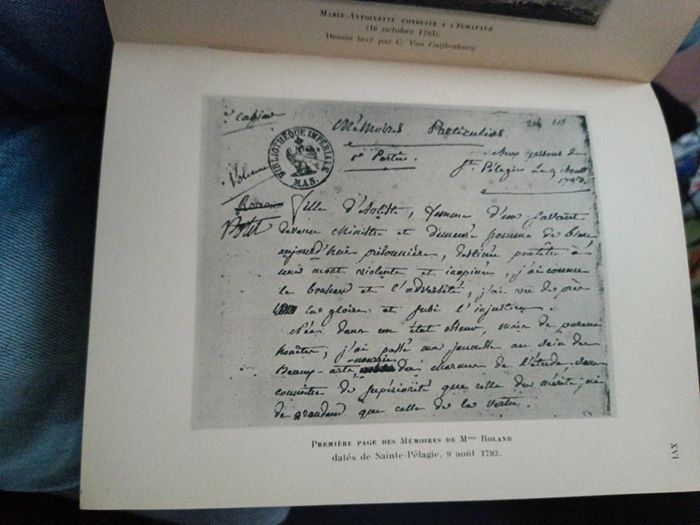 MARIE-ANTOINETTE CONDUITE A L'ÉCHAFAUD
(16 octobre 1793).
Dessin lavé par C. Van Cuijlenburg
Mémoires Particuliers.
1e Partie
Ste Pélagie Le 9 Août
1793.
BIBLIOTHÈQUE IMPÉRIALE
MAN.
Volume
Fille d'Artiste, femme d'un savant
devenu Ministre et demeuré homme de bien
aujourd'hui prisonnière, destinée peutêtre à
une mort violente et inopinée, j'ai connu
le bonheur et l'adversité, j'ai vu de près
la gloire et subi l'injustice.
Née dans un état obscur, mais de parens
honnêtes, j'ai passé ma jeunesse au sein des
Beaux-arts nourrie des charmes de l'étude sans
connoitre de supériorité que celle du mérite, ni
de grandeur que celle de la vertu.
PREMIÈRE PAGE DES MÉMOIRES DE Mme ROLAND
datés de Sainte-Pélagie, 9 août 1793.
XVI